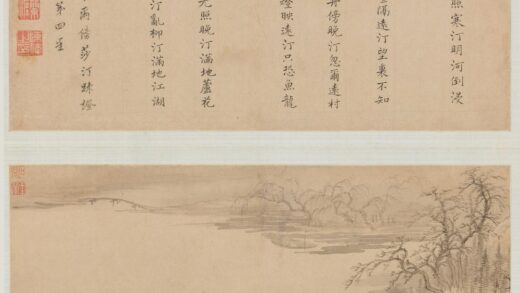 照寒汀明河倒浸
隔遠汀望裏不知
傍晚汀忽爾遠村
燈映遠汀只恐魚龍
光照晚汀滿地蘆花
亂柳汀滿地江湖
傍莎汀疎燈
第四